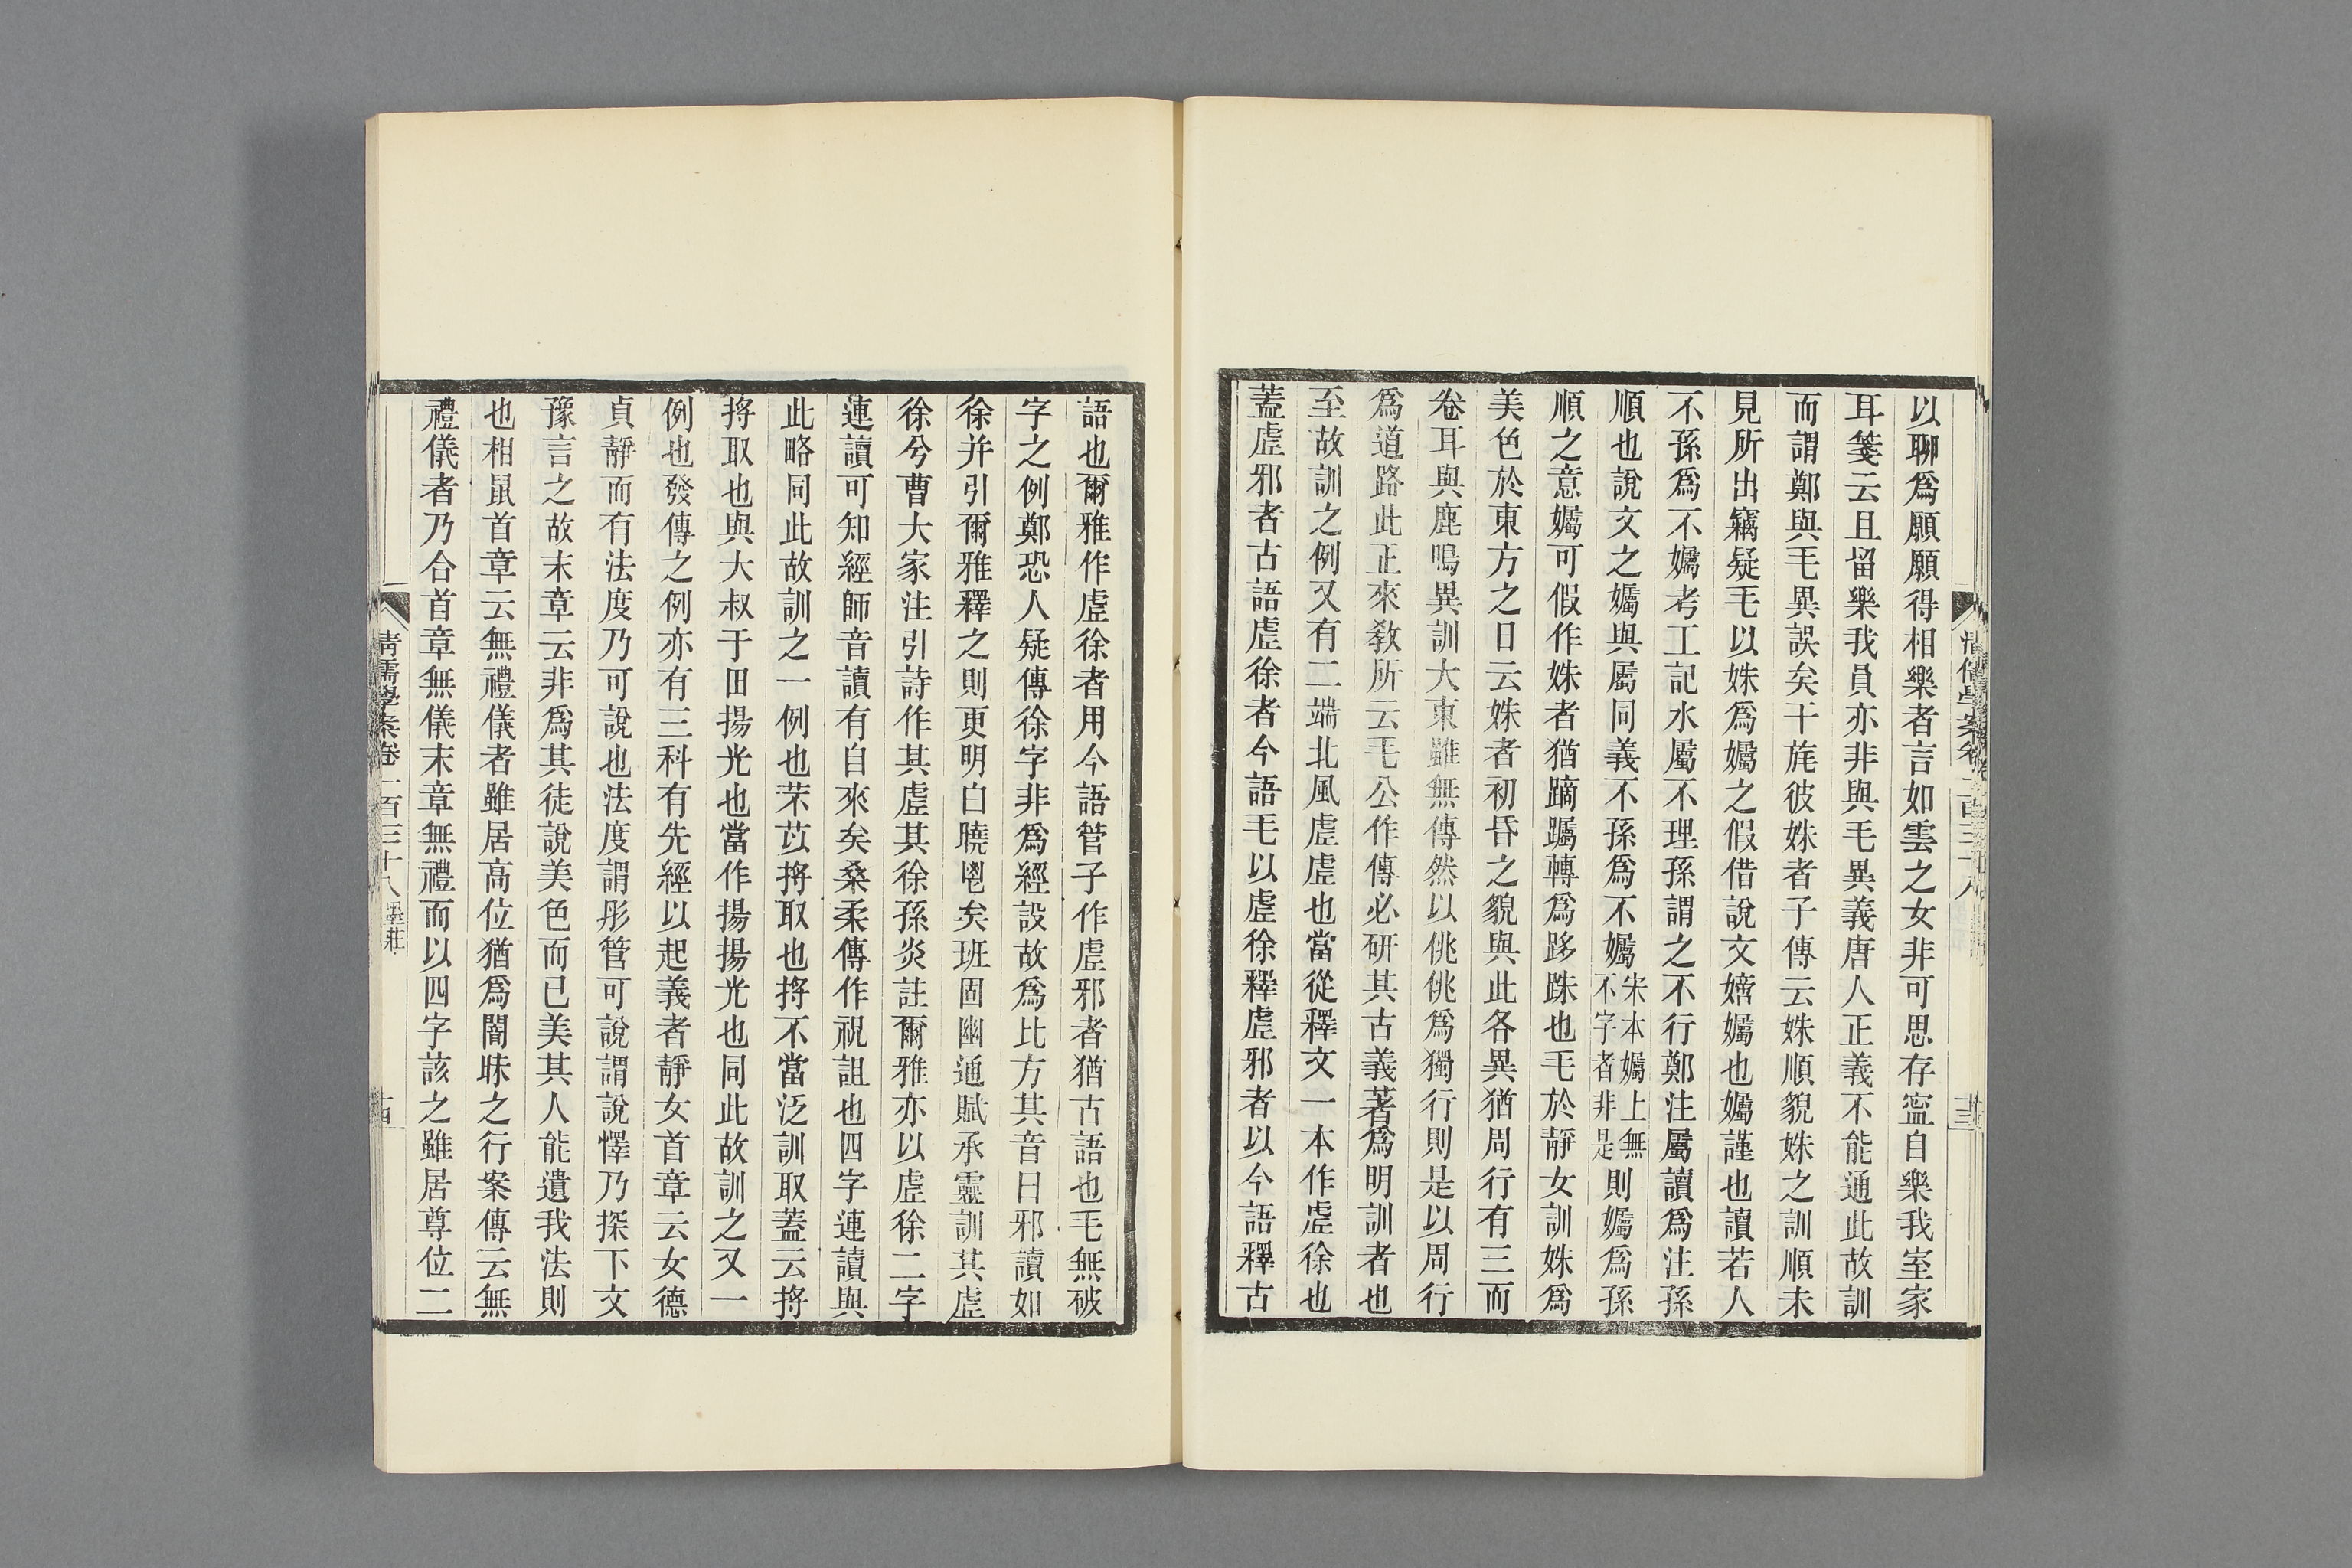 以聊爲願願得相樂者言如雲之女非可思存寍自樂我室家
耳箋云且留樂我員亦非與毛異義唐人正義不能通此故訓
而謂鄭與毛異誤矣干旄彼姝者子傳云姝順貌姝之訓順未
見所出竊疑毛以姝爲孎之假借說文嫧孎也孎謹也讀若人
不孫爲不孎考工記水屬不理孫謂之不行鄭注屬讀爲注孫
順也說文之孎與屬同義不孫爲不孎宋本孎上無不字者非是則孎爲孫
順之意孎可假作姝者猶蹢躅轉爲跢跦也毛於靜女訓姝爲
美色於東方之日云姝者初昏之貌與此各異猶周行有三而
卷耳與鹿鳴異訓大東雖無傳然以佻佻爲獨行則是以周行
爲道路此正來教所云毛公作傳必研其古義著爲明訓者也
至故訓之例又有二端北風虛虛也當從釋文一本作虛徐也
蓋虛邪者古語虛徐者今語毛以虛徐釋虛邪者以今語釋古
語也爾雅作虛徐者用今語管子作虛邪者猶古語也毛無破
字之例鄭恐人疑傳徐字非爲經設故爲比方其音曰邪讀如
徐并引爾雅釋之則更明白曉鬯矣班固幽通賦承靈訓其虛
徐兮曹大家注引詩作其虛其徐孫炎註爾雅亦以虛徐二字
蓮讀可知經師音讀有自來矣桑柔傳作祝詛也四字連讀與
此略同此故訓之一例也芣苢捋取也捋不當泛訓取蓋云捋
捋取也與大叔于田揚光也當作揚揚光也同此故訓之又一
例也發傳之例亦有三科有先經以起義者靜女首章云女德
貞靜而有法度乃可說也法度謂彤管可說謂說懌乃探下文
豫言之故末章云非爲其徒說美色而已美其人能遺我法則
也相鼠首章云無禮儀者雖居高位猶爲闇昧之行案傳云無
禮儀者乃合首章無儀末章無禮而以四字該之雖居尊位二
清儒學案卷一百三十八 墨莊
十四